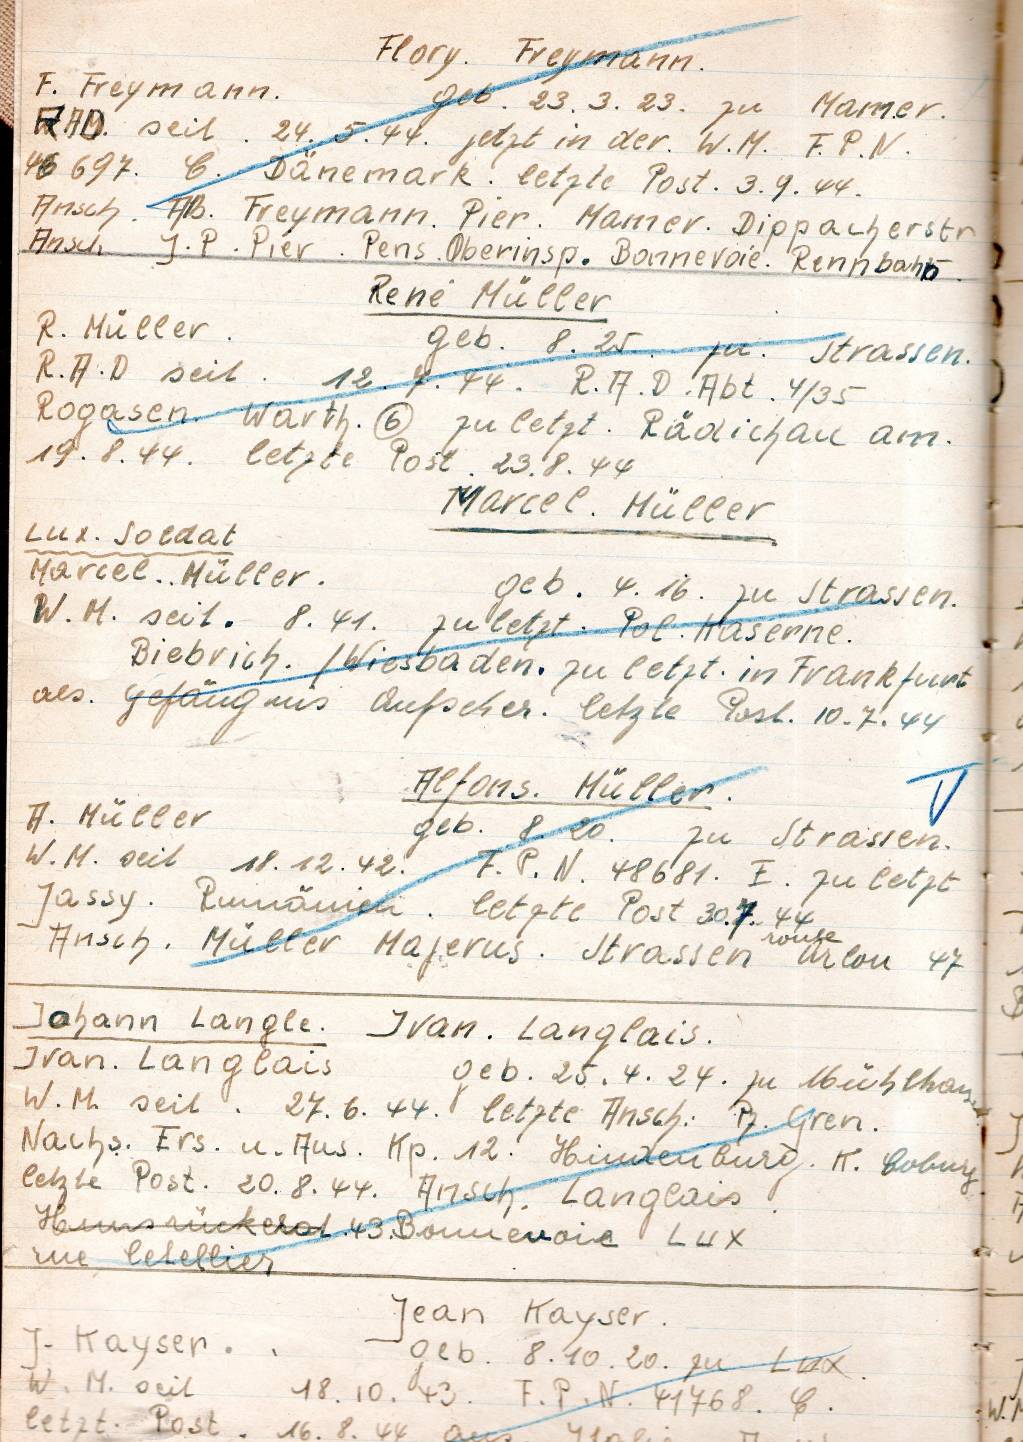 Flory. Freymann.
F. Freymann. geb. 23. 3. 23. zu Mamer.
RAD. seit. 24. 5. 44. jetzt in der. W.M. F.P.N.
46 697. C. Dänemark. letzte Post. 3. 9. 44.
Ansch. AB. Freymann. Pier. Mamer. Dippacherstr
Ansch J. P. Pier. Pens. Oberinsp. Bonnevoie. Rennbahn
René Müller
R. Müller. geb. 8. 25. zu. Strassen.
R.A.D seit. 12. 7. 44. R.A.D. Abt. 4/35
Rogasen. Warth. 6 zuletzt. Rädichau am.
19. 8. 44. letzte Post. 23. 8. 44
Marcel. Müller
Lux. Soldat
Marcel.. Müller. geb. 4. 16. zu Strassen.
W. M. seit. 8. 41. zuletzt. Pol. Kaserne.
Biebrich. /Wiesbaden. zuletzt. in Frankfurt
als. Gefängnis Aufseher. letzte Post. 10. 7. 44
Alfons. Müller.
A. Müller geb. 8. 20. zu Strassen.
W.M. seit 18. 12. 42. F.P.N. 48681. E. zuletzt
Jassy. Rumänien. letzte Post 30.7. 44
Ansch. Müller Majerus. Strassen route Arlon 47
Johann Langle. Ivan. Langlais.
Ivan. Langlais geb. 25. 4. 24. zu Mühlhausen
W. M. seit. 27. 6. 44. letzte Ansch: Pz. Gren.
Nachs. Ers. u. Aus. Kp. 12. Hindenburg. K. Coburg
letzte Post. 20. 8. 44. Ansch. Langlais
Hunsrückerst. 43. Bonnevoie Lux
rue Letellier
Jean Kayser.
J. Kayser. geb. 8. 10. 20. zu Lux.
W. M. seit 18. 10. 43. F.P.N. 41768. C.
letzt. Post. 16. 8. 44 aus. Italien